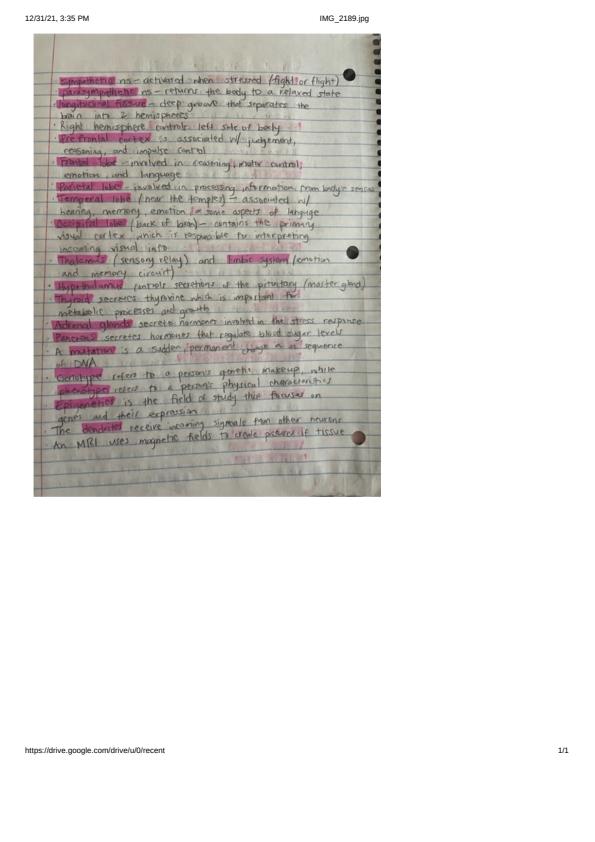 12/31/21, 3:35 PM
IMG_2189.jpg
sympathetic ns - activated when stressed (fight or flight)
parasympathetic ns - returns the body to a relaxed state
longitudinal fissure - deep groove that separates the
brain into 2 hemispheres
· Right hemisphere controls left side of body
· Prefrontal cortex is associated w/ judgement,
reasoning, and impulse control
· Frontal lobe - involved in reasoning, motor control,
emotion, and language
Parietal lobe - involved in processing information from body's senses
· Temporal lobe (near the temples) - associated w/
hearing, memory, emotion & some aspects of language
Occipital lobe (back of brain) - contains the primary
visual cortex which is responsible for interpreting
incoming visual info
· Thalamus (sensory relay) and limbic system (emotion
and memory circuit)
· Hypothalamus controls secretions of the pituitary (master gland)
· Thyroid secretes which is important for
metabolic processes and growth
· Adrenal glands secrete hormones involved in the stress response
Pancreas secretes hormones that regulate blood sugar levels
· A mutation is a sudden, permanent change sequence
of DNA
· Genotype refers to a person's genetic makeup, while
phenotype refers to a person's physical characteristics
Epigenetics is the field of study that focuses on
genes and their expression
· The dendrites receive incoming signals from other neurons
· An MRI uses magnetic fields to create pictures of tissue
https://drive.google.com/drive/u/0/recent
1/1